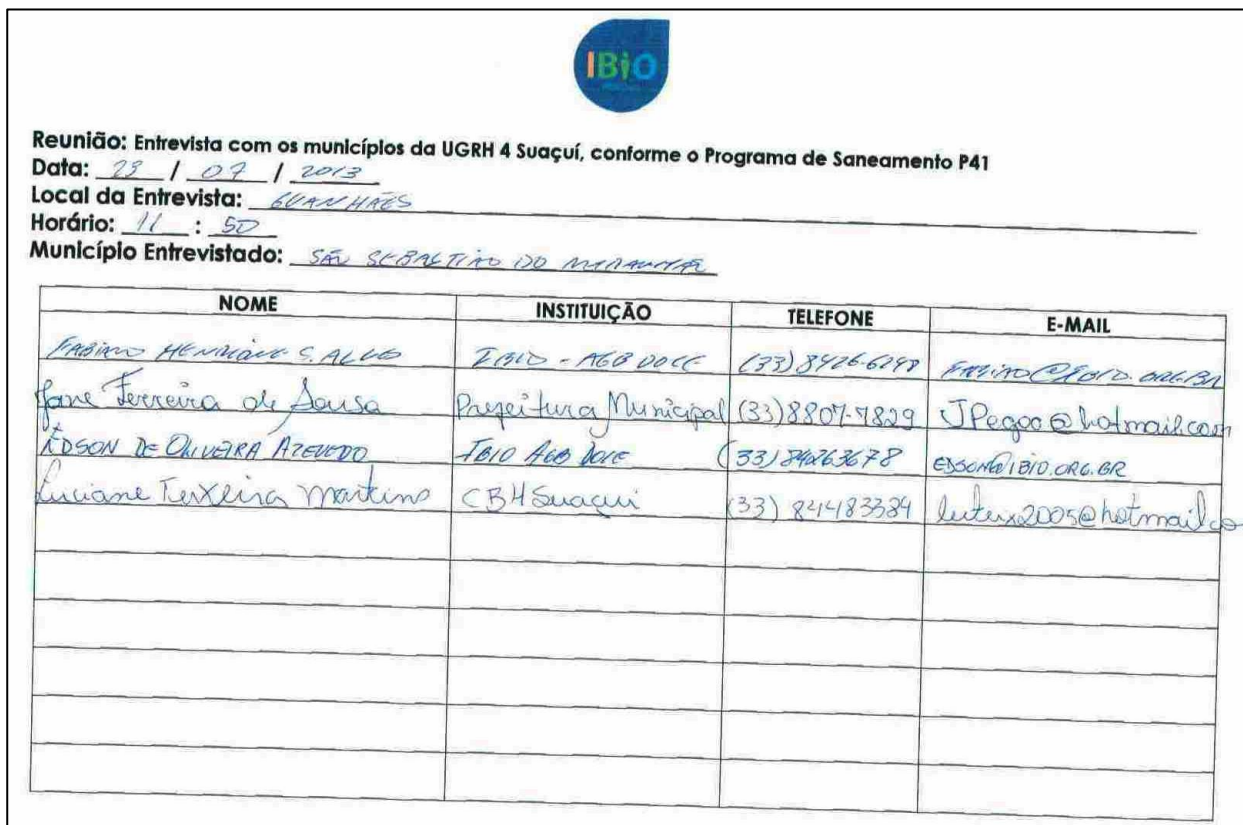 IBiO
Reunião: Entrevista com os municípios da UGRH 4 Suaçuí, conforme o Programa de Saneamento P41
Data: 23 / 07 / 2013
Local da Entrevista: GUANHÃES
Horário: 11 : 50
Município Entrevistado: SÃO SEBASTIÃO DO MARANHÃO
NOME INSTITUIÇÃO TELEFONE E-MAIL
FABIANO HENRIQUE S. ALVES IBIO - AGB DOCE (33) 8426-6298 FABIANO@IBIO.ORG.BR
Jane Ferreira de Sousa Prefeitura Municipal (33) 8807-7829 JPegoo@hotmail.com
EDSON DE OLIVEIRA AZEVEDO IBIO AGB DOCE (33) 84263678 EDSON@IBIO.ORG.BR
Luciane Teixeira Martins CBH Suaçui (33) 84483384 luteix2005@hotmail.co